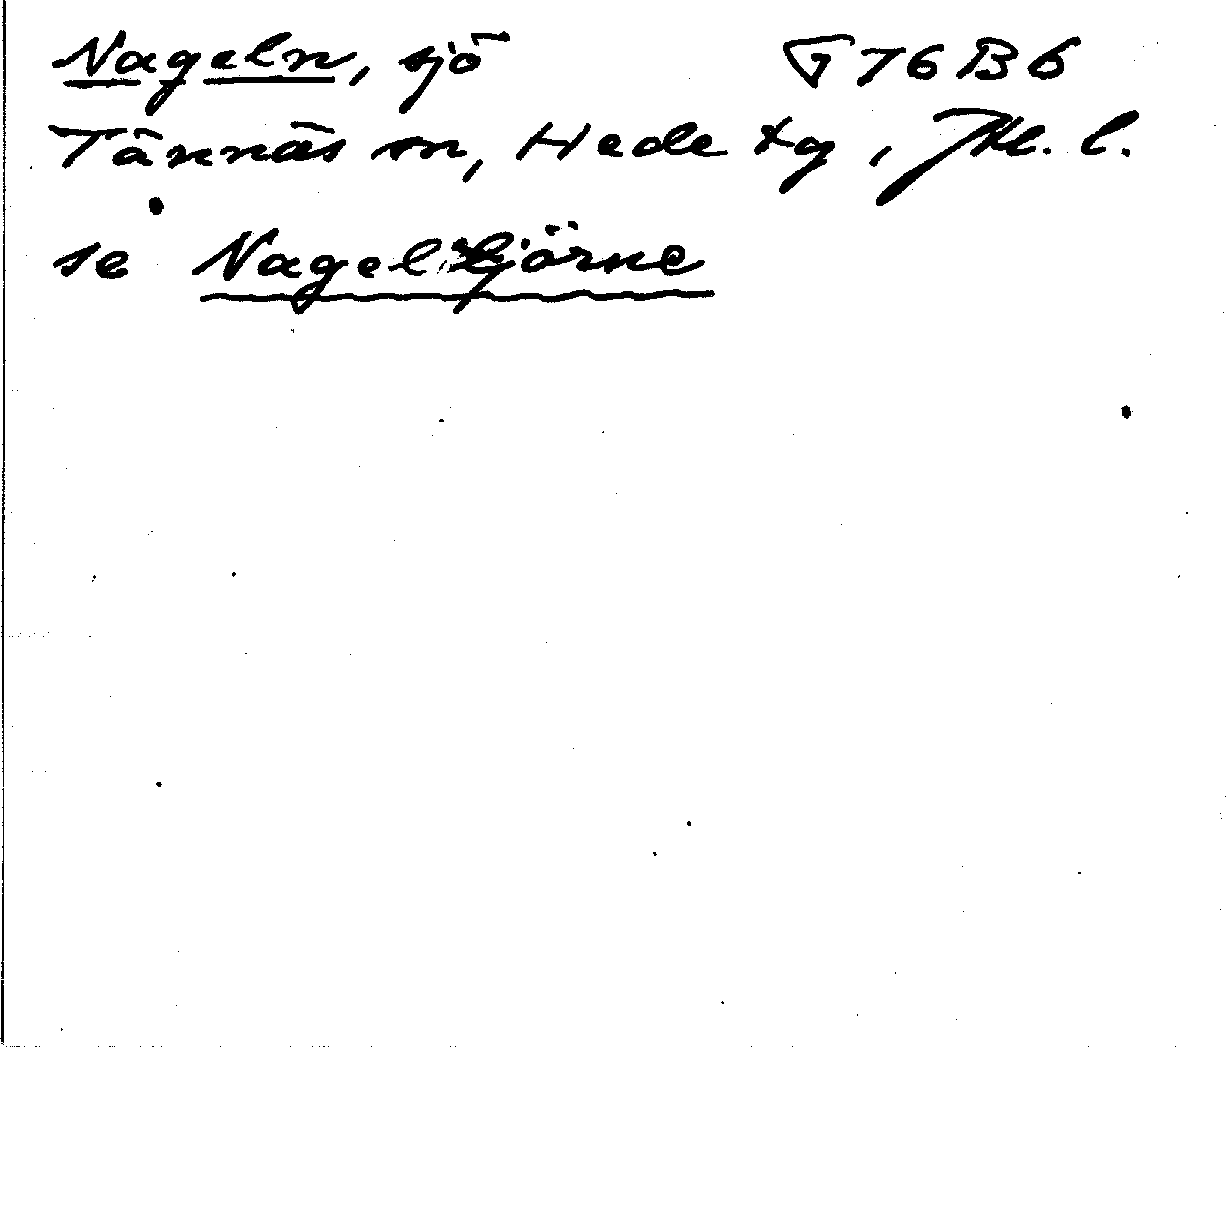 Nageln, sjö G 76 B 6
Tännäs sn, Hede tg, Jtl. l.
se Nageltjörne